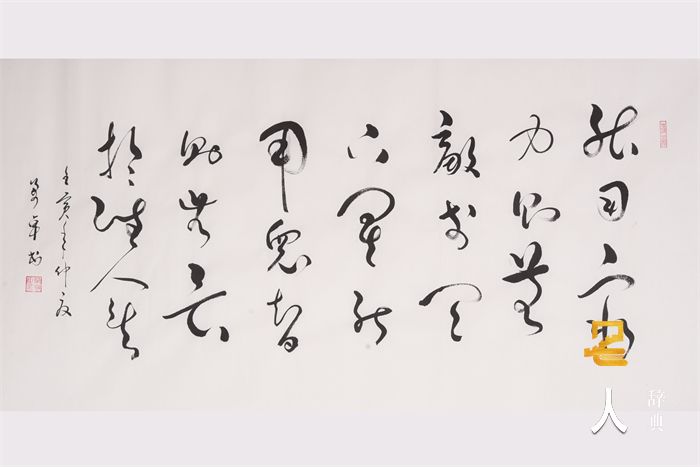 能用衆
力則無
敵於天
下矣能
用衆智
則無畏
於聖人矣
壬寅年仲夏
书
名人
辞典